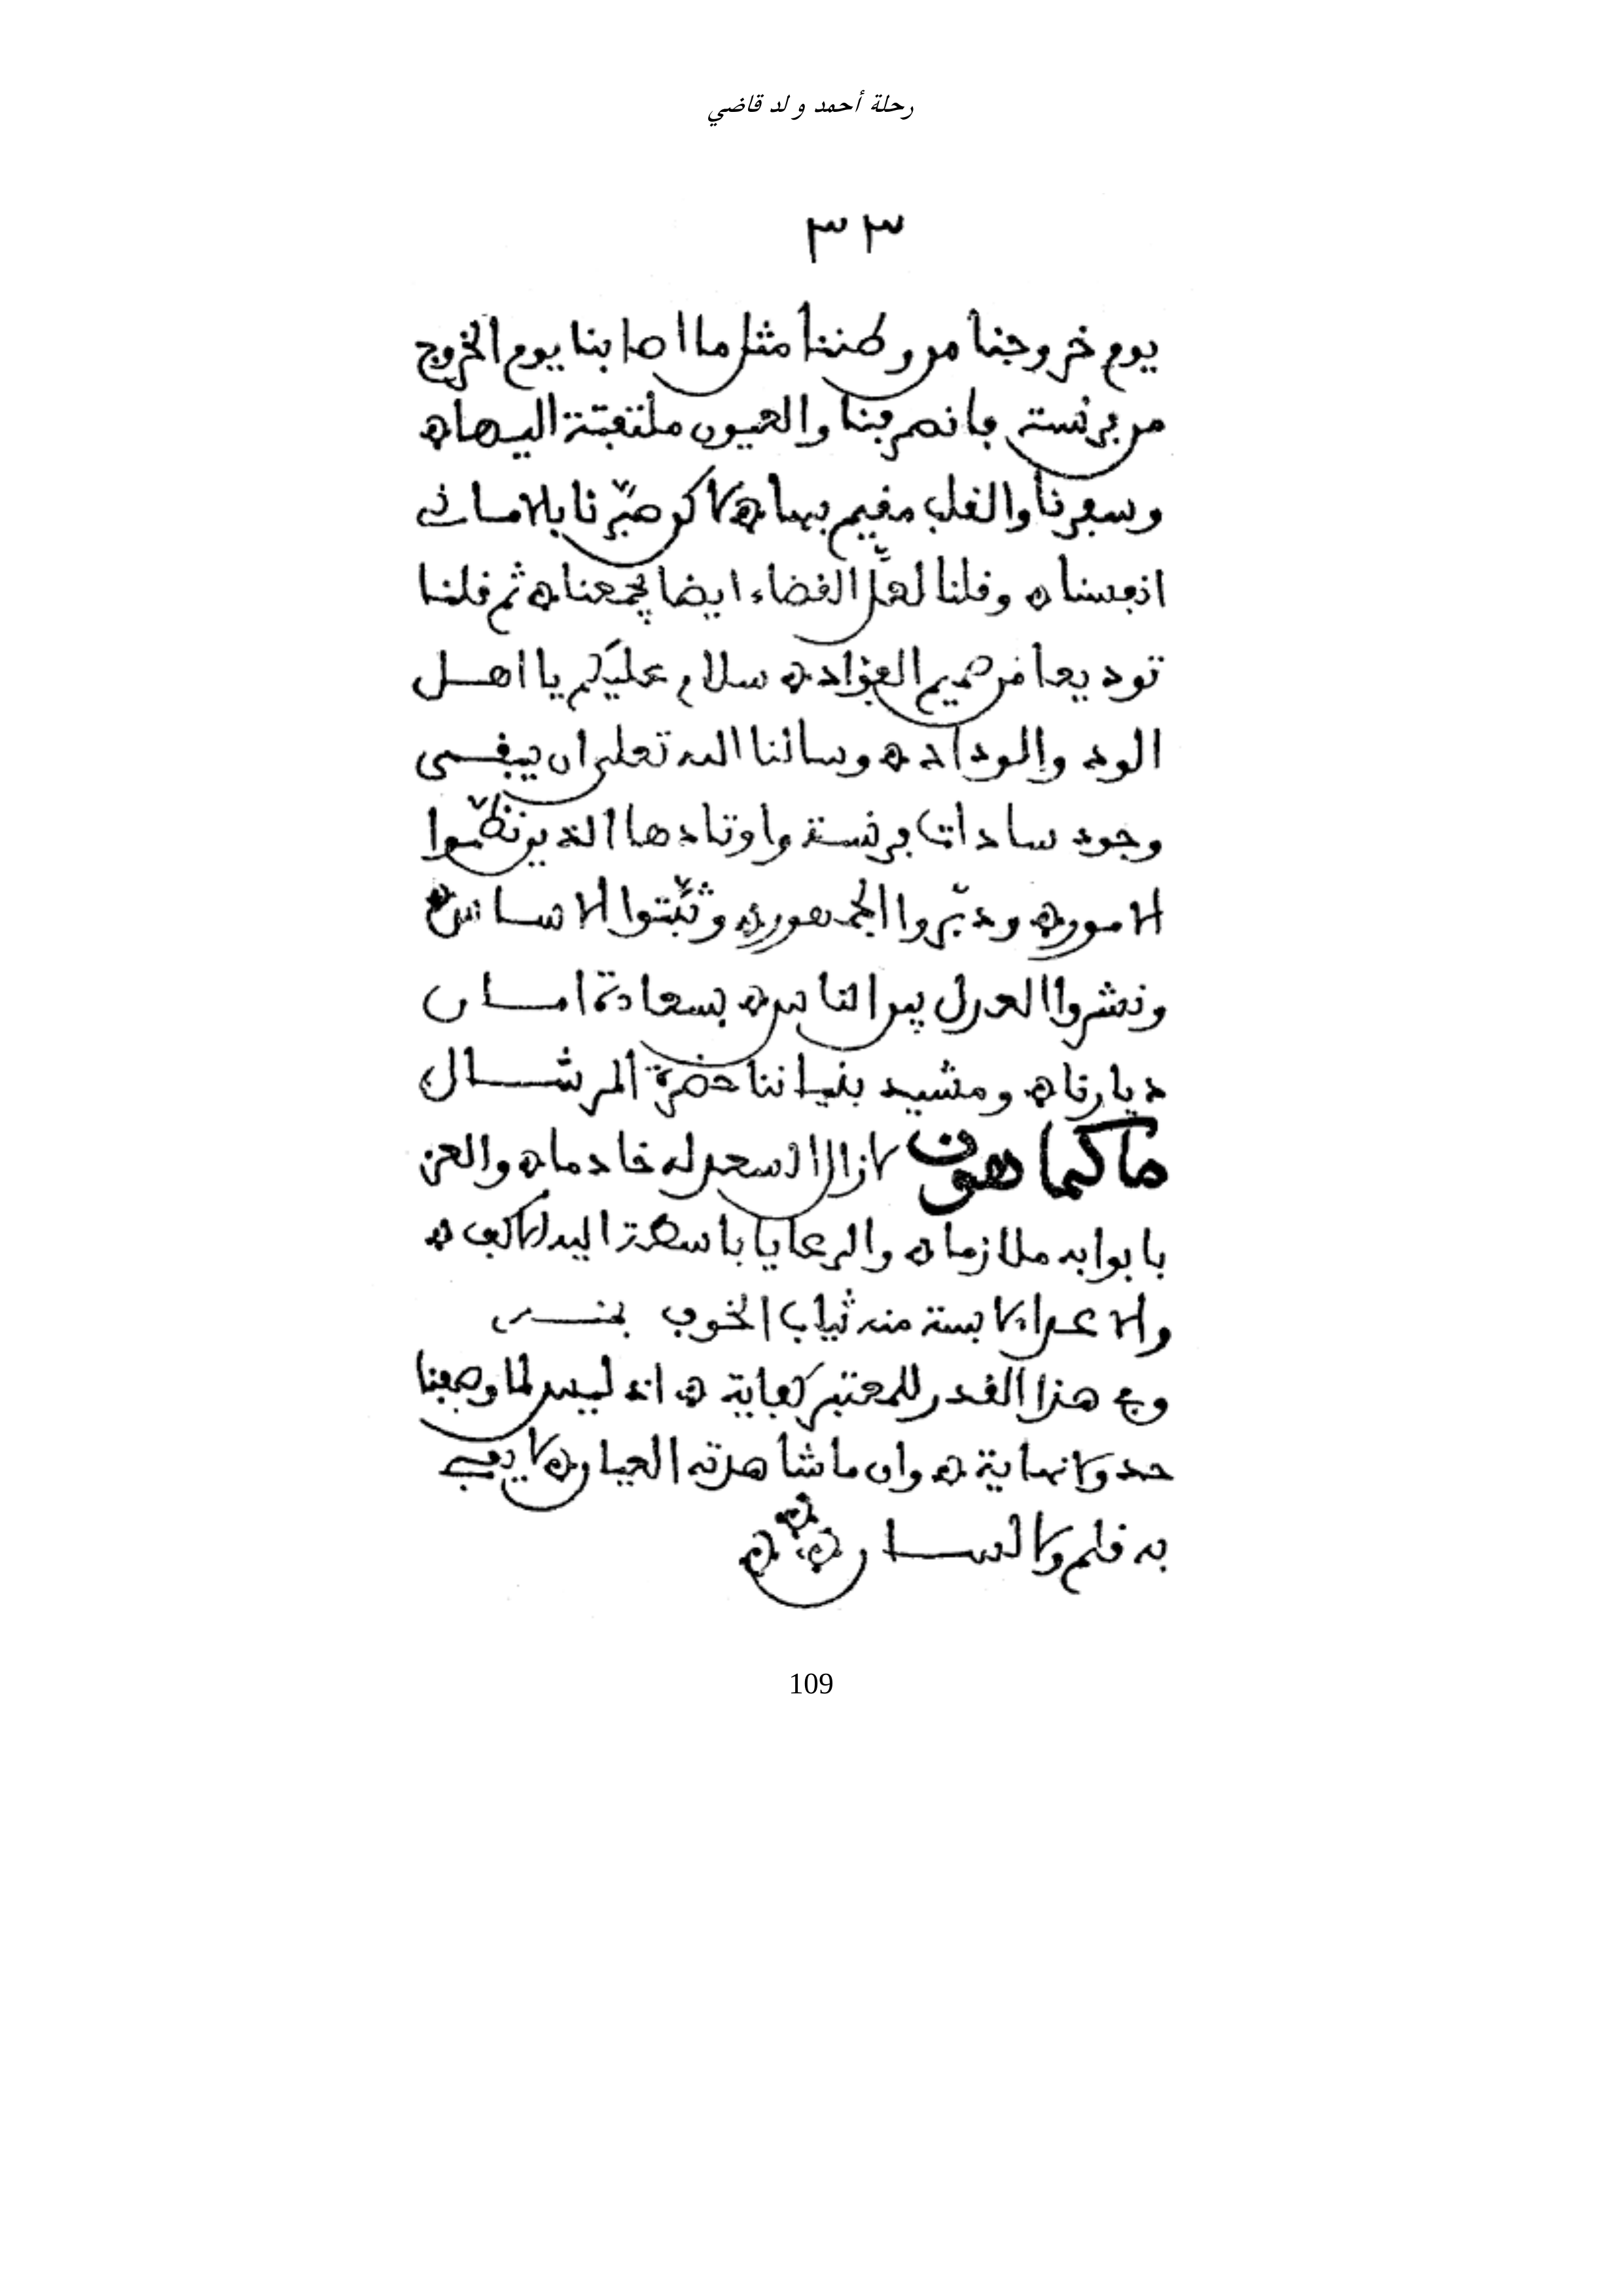 رحلة أحمد ولد قاضي
٣٣
يوم خروجنا من وطننا مثل ما اصابنا يوم الخروج
من برنسة فانصرفنا والعيون ملتفتة اليها ه
وسفرنا والقلب مقيم بها ه لاكن صبّرنا بالامانى
انفسنا ه وقلنا لعلّ القضاء ايضا يجمعنا ه ثم قلنا
توديعا من صميم الفؤاد ه سلام عليكم يا اهل
الود والوداد ه وسالنا الله تعلى ان يبقى
وجود سادات برنسة واوتادها الذين نظّموا
الامور ه ودبّروا الجمهور ه وثبّتوا الاساس ه
ونشروا العدل بين الناس ه بسعادة امان
ديارنا ه ومشيد بنياننا حضرة المرشال
ماكماهون لازال السعد له خادما ه والعز
بابوابه ملازما ه والرعايا باسطة اليه الاكف ه
والاعداء لابسة منه ثياب الخوف
وفى هذا القدر للمعتبر كفاية ه اذ ليس لما وصفنا
حد ولا نهاية ه وان ما شاهدته العيان ه لا يفى
به قلم ولا لسان ه ه ه
109